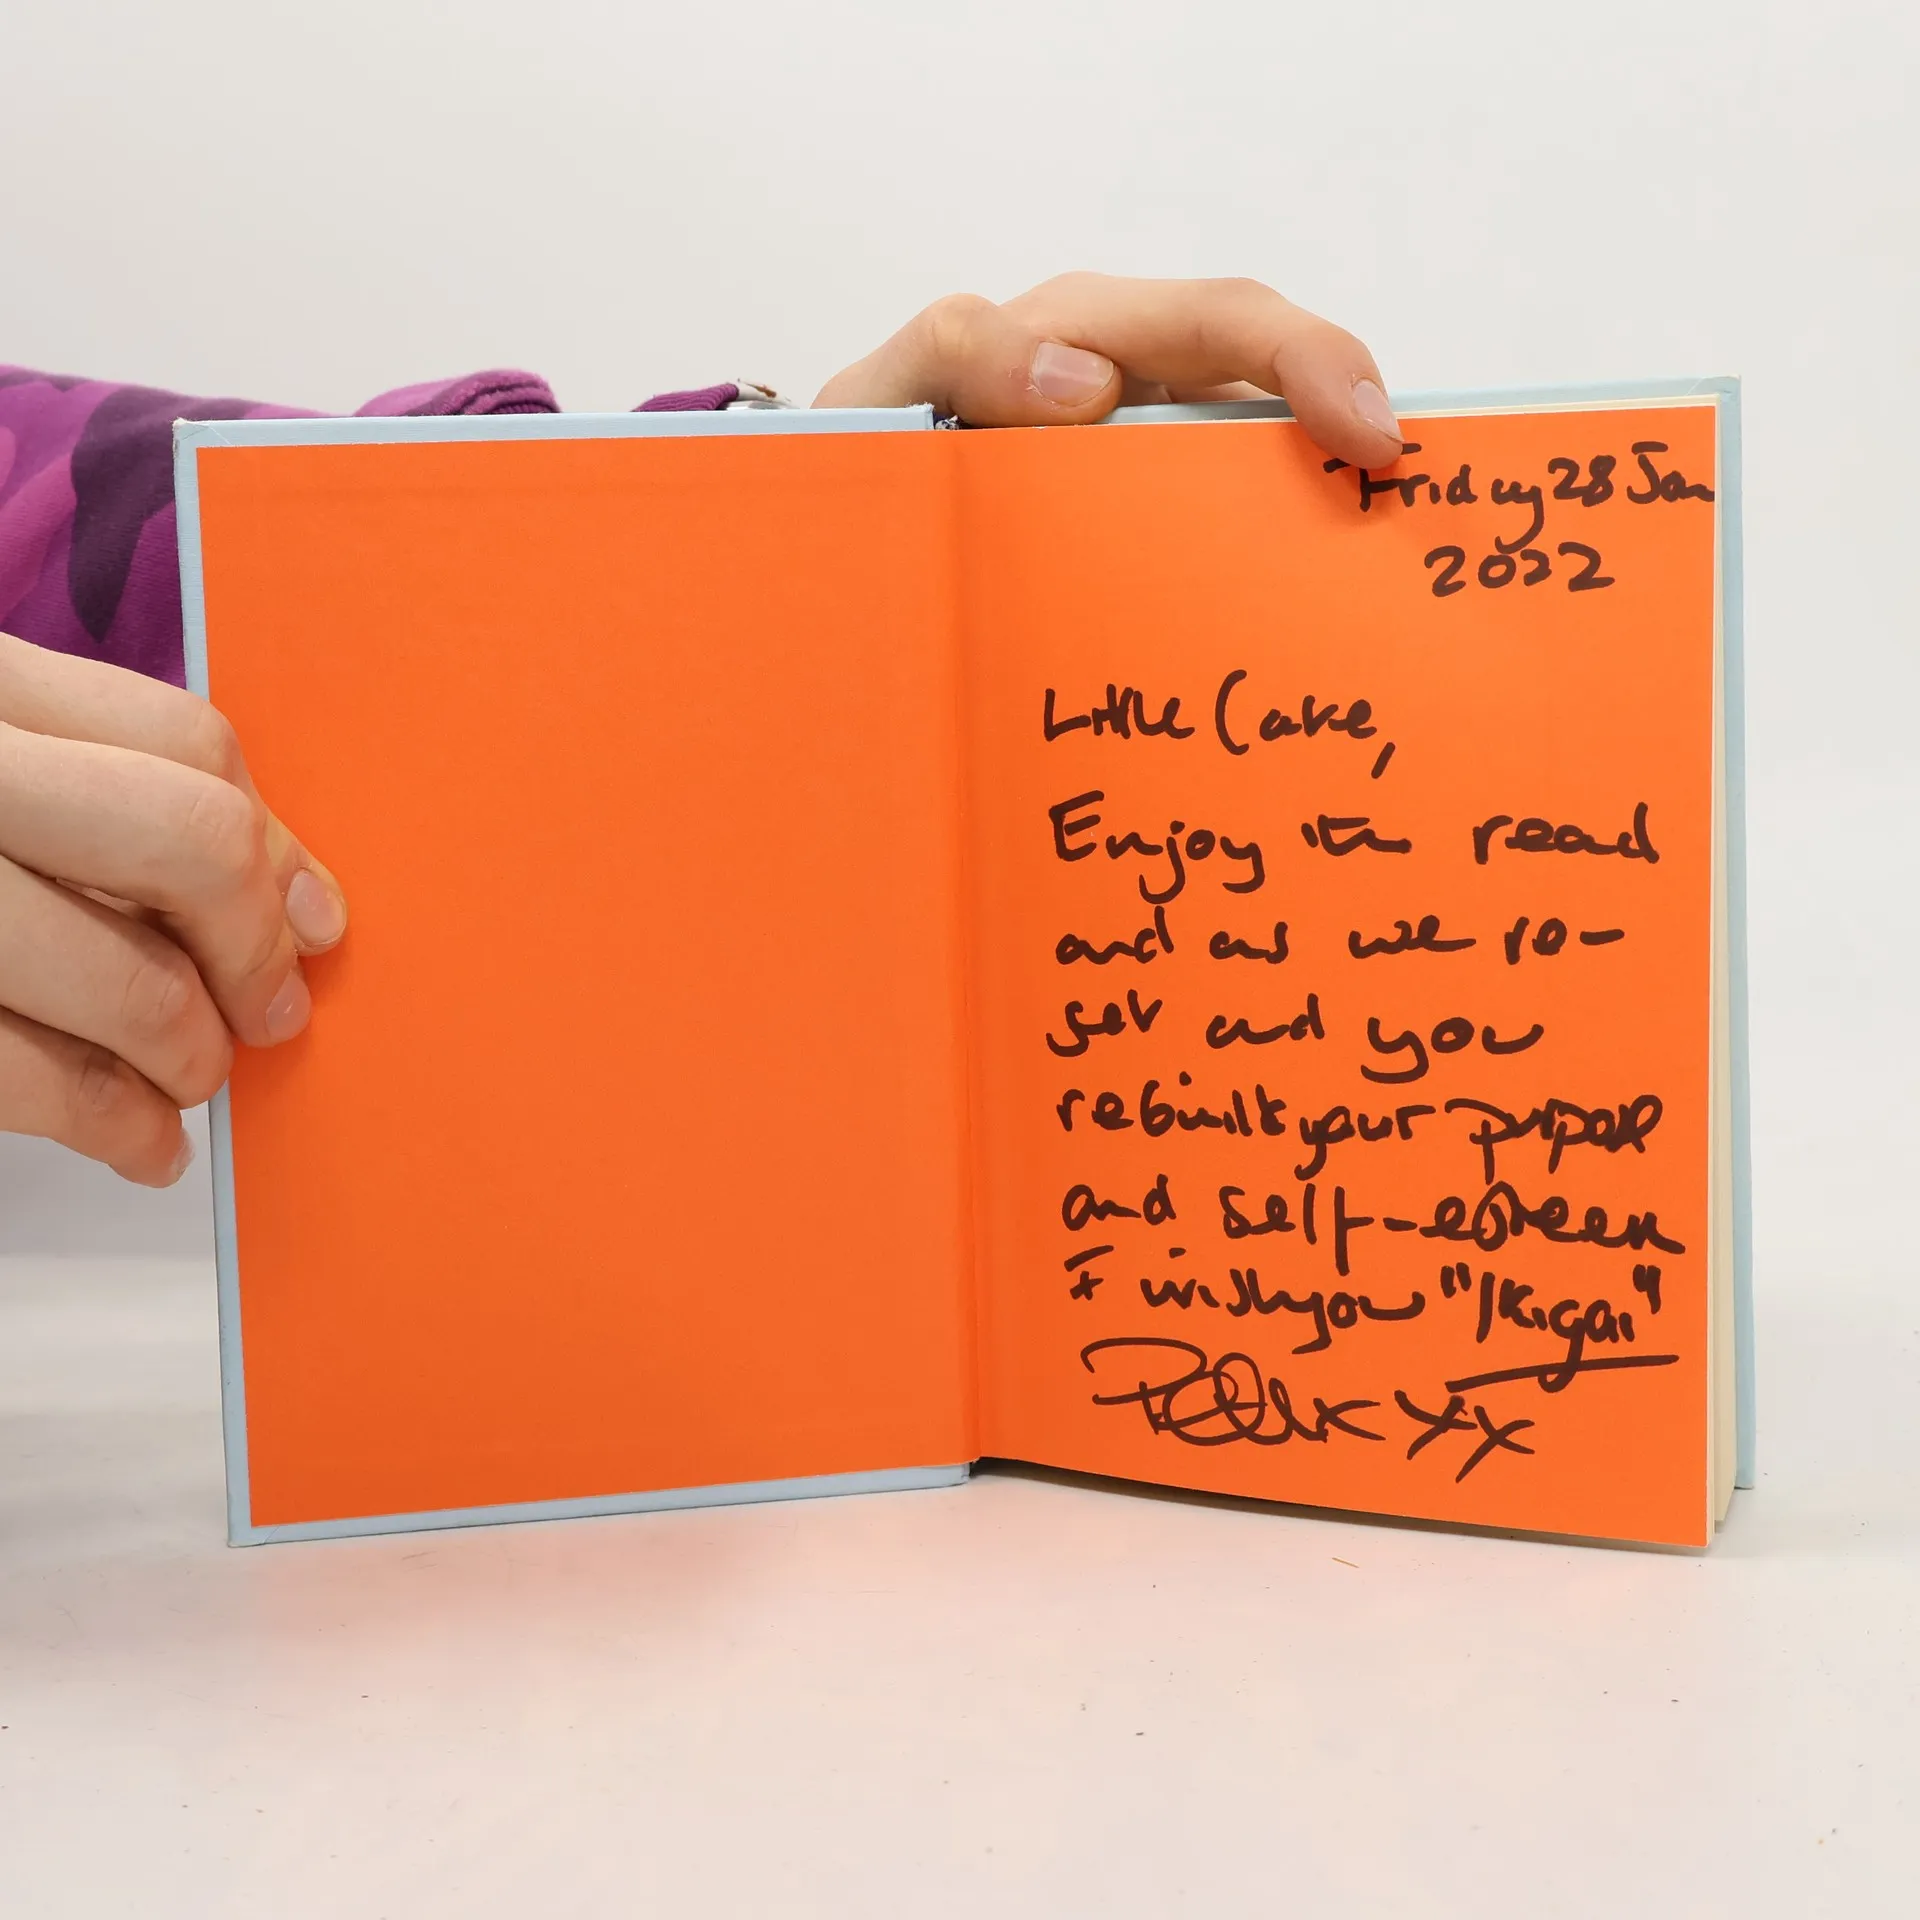 Friday 28 Jan
2022
Little Cake,
Enjoy the read
and as we re-
set and you
rebuilt your purpose
and self-esteem
I wish you "Ikigai"
xxx